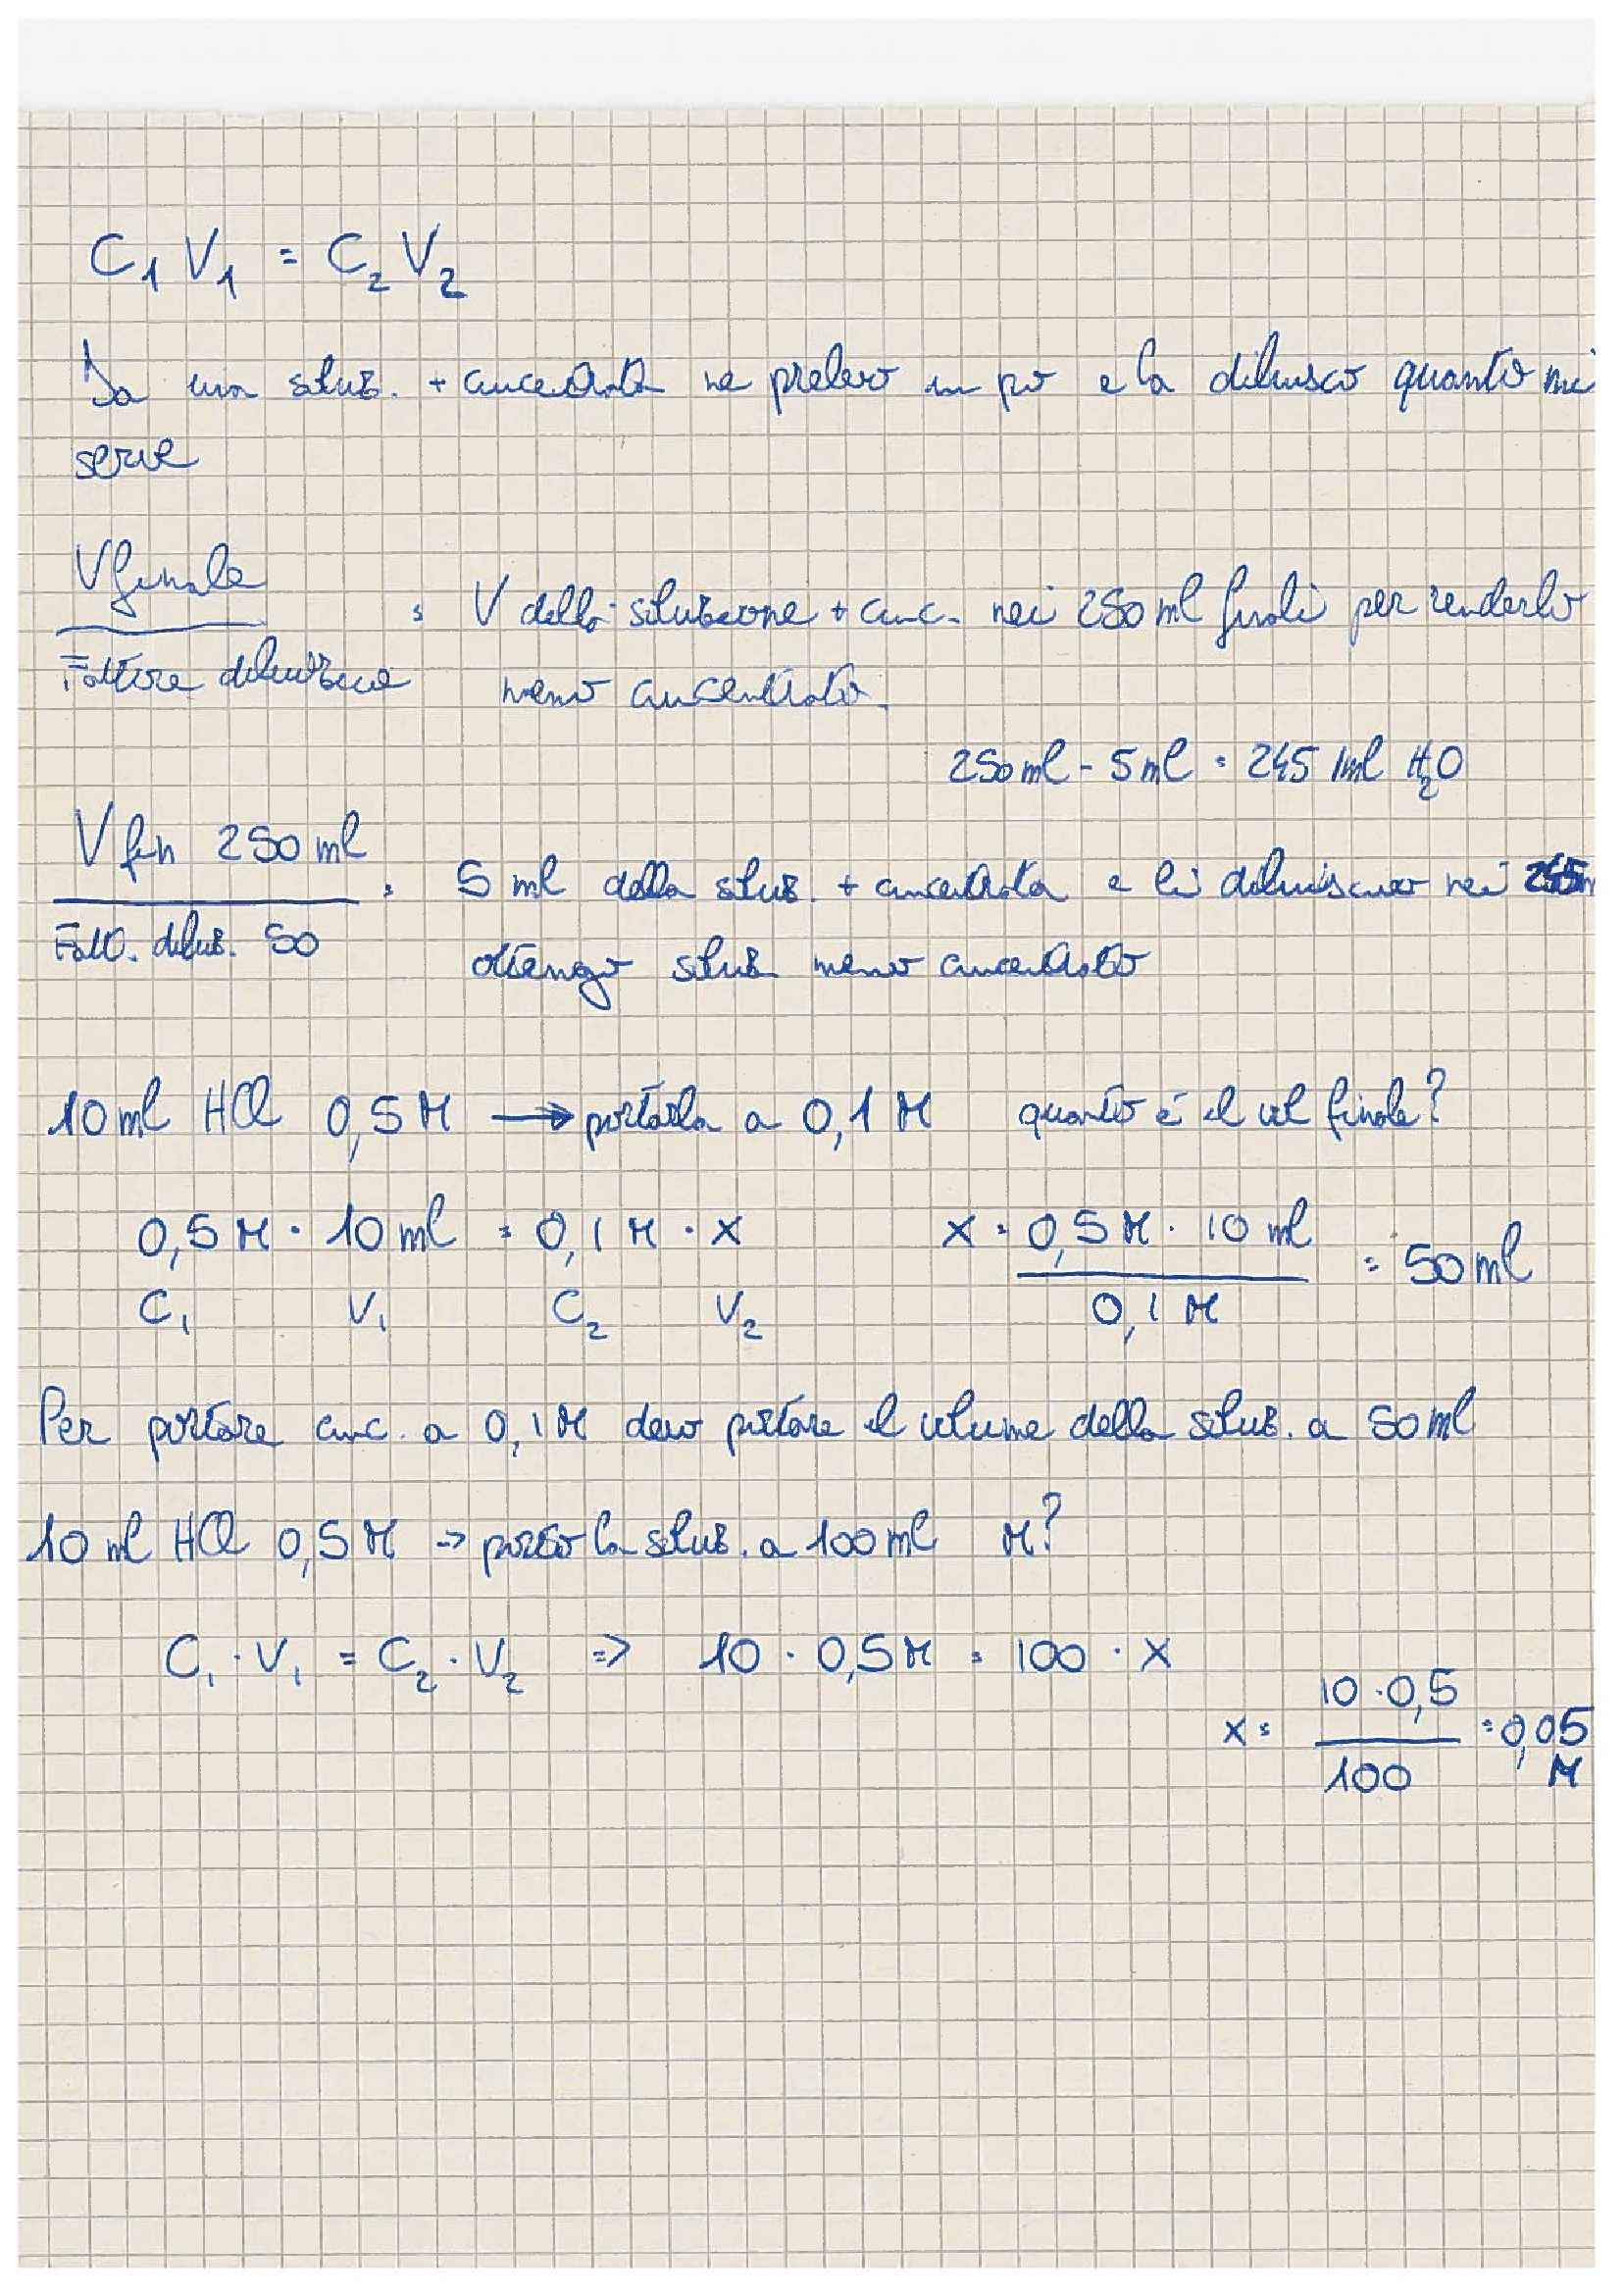 C₁ V₁ = C₂ V₂
Da una soluz. + concentrata ne prelevo un po e la diluisco quanto mi
serve
V finale = V della soluzione + conc. nei 250 ml finali per renderlo
Fattore diluizione meno concentrato.
250 ml - 5 ml = 245 ml H₂O
V fin 250 ml = 5 ml della soluz. + concentrata e li diluisco nei 245
Fatt. diluiz. 50 ottengo soluz meno concentrato
10 ml HCl 0,5 M → portarla a 0,1 M quanto è il vol finale?
0,5 M · 10 ml = 0,1 M · x x = 0,5 M · 10 ml = 50 ml
C₁ V₁ C₂ V₂ 0,1 M
Per portare conc. a 0,1 M devo portare il volume della soluz. a 50 ml
10 ml HCl 0,5 M → porto la soluz. a 100 ml M?
C₁ · V₁ = C₂ · V₂ => 10 · 0,5 M = 100 · x
x = 10 · 0,5 = 0,05
100 M